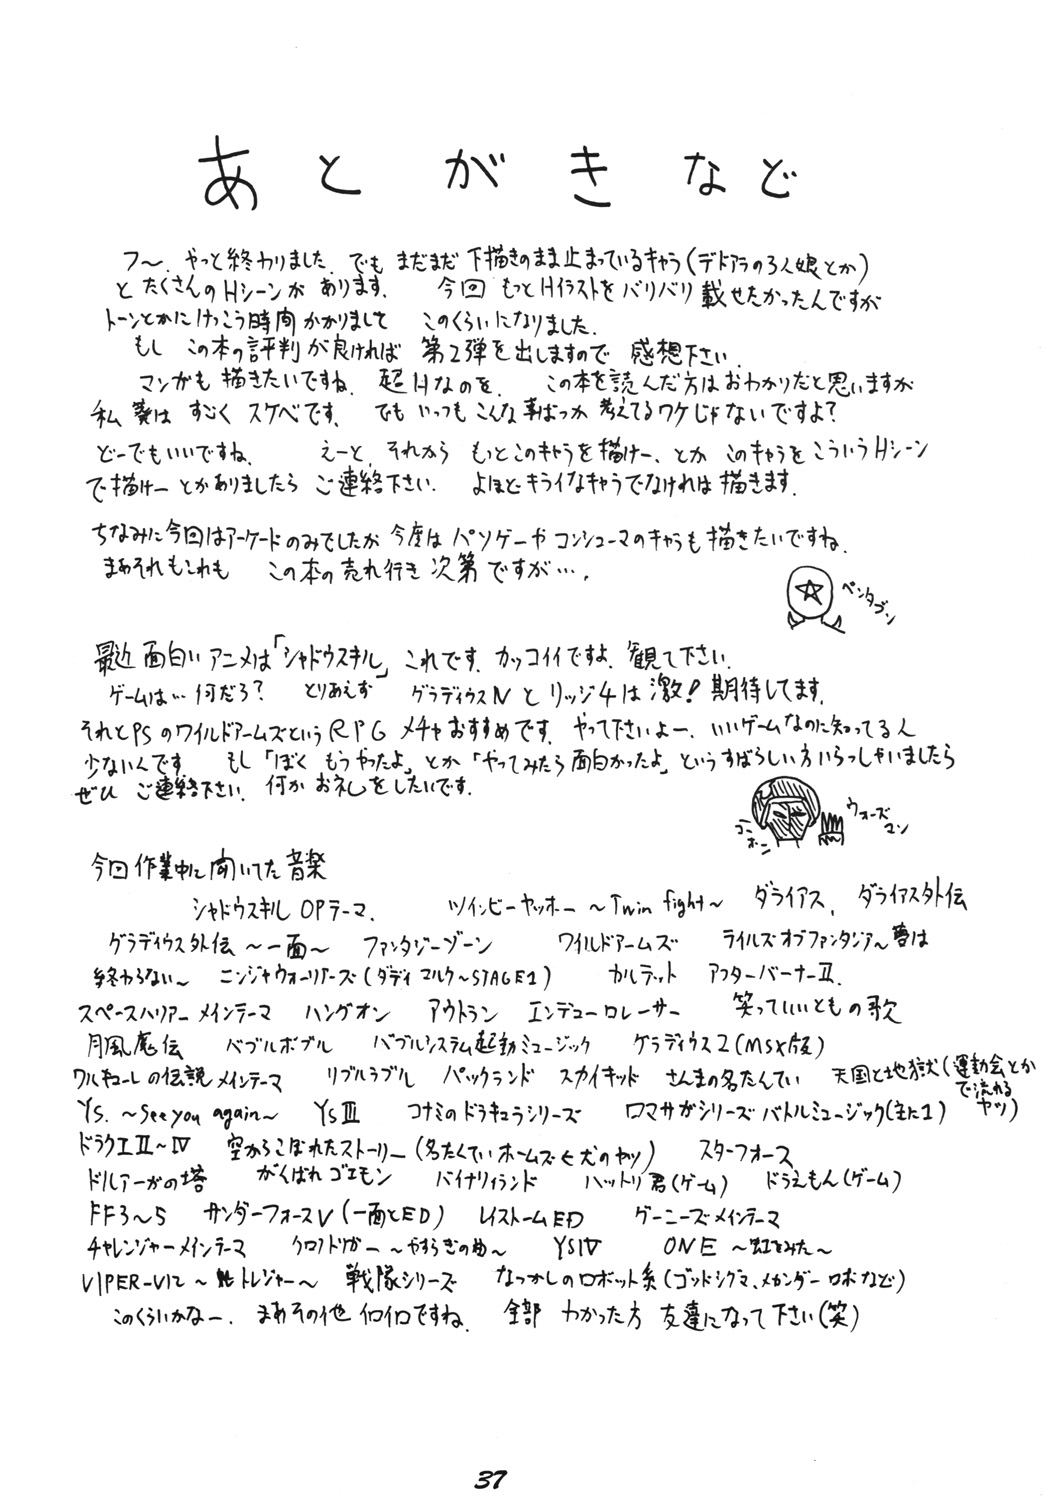 あとがきなど
フ〜、やっと終わりました。でも まだまだ 下描きのまま止まっているキャラ(デドアラの3人娘とか)
と たくさんのHシーンが あります。 今回 もっとHイラストをバリバリ 載せたかったんですが
トーンとかにけっこう時間かかりまして このくらいになりました。
もし この本の評判が良ければ 第2弾を出しますので 感想下さい。
マンガも描きたいですね。超Hなのを。 この本を読んだ方はおわかりだと思いますが
私 はすごく スケベです。 でも いっつもこんな事ばっか考えてるワケじゃないですよ?
どーでもいいですね。 えーと、それから もっとこのキャラを描けー、とか このキャラをこういうHシーン
で描けー とかありましたら ご連絡下さい。 よほどキライなキャラでなければ描きます。
ちなみに今回はアーケードのみでしたが 今度は パソゲーや コンシューマのキャラも描きたいですね。
まあそれもこれも この本の売れ行き次第ですが…。
ペンタゴン
最近面白いアニメは「シャドウスキル」これです。カッコイイですよ。観て下さい。
ゲームは…何だろ? とりあえず グラディウスⅣとリッジ4は激!期待してます。
それとPSのワイルドアームズというRPG メチャおすすめです。やって下さいよー。いいゲームなのに知ってる人
少ないんです。 もし「ぼく もうやったよ」とか「やってみたら面白かったよ」というすばらしい方いらっしゃいましたら
ぜひ ご連絡下さい。何かお礼をしたいです。
コーホー
ウォーズマン
今回作業中に聞いてた音楽
シャドウスキル OPテーマ、 ツインビーヤッホー 〜Twin fight〜 ダライアス、 ダライアス外伝
グラディウス外伝 〜一面〜 ファンタジーゾーン ワイルドアームズ テイルズオブファンタジア〜夢は
終わらない〜 ニンジャウォーリアーズ(ダディマルク〜STAGE1) カルテット アフターバーナーⅡ.
スペースハリアーメインテーマ ハングオン アウトラン エンデューロレーサー 笑っていいともの歌
月風魔伝 バブルボブル バブルシステム起動ミュージック グラディウス2(MSX版)
ワルキューレの伝説メインテーマ リブルラブル パックランド スカイキッド さんまの名たんてい 天国と地獄(運動会とかで流れるヤツ)
Ys. 〜See you again〜 YsⅢ コナミのドラキュラシリーズ ロマサガシリーズバトルミュージック(主に1)
ドラクエⅡ〜Ⅳ 空からこぼれたストーリー(名たんていホームズ 犬のヤツ) スターフォース
ドルアーガの塔 がんばれゴエモン バイナリィランド ハットリ君(ゲーム) ドラえもん(ゲーム)
FF3〜5 サンダーフォースⅤ(一面とED) レイストームED グーニーズメインテーマ
チャレンジャーメインテーマ クロノトリガー〜やすらぎの曲〜 YSⅣ ONE 〜虹をみた〜
VIPER-V12 〜トレジャー〜 戦隊シリーズ なつかしのロボット系(ゴッドシグマ、メカンダーロボなど)
このくらいかなー。 まあその他イロイロですね。 全部 わかった方 友達になって下さい(笑)
37